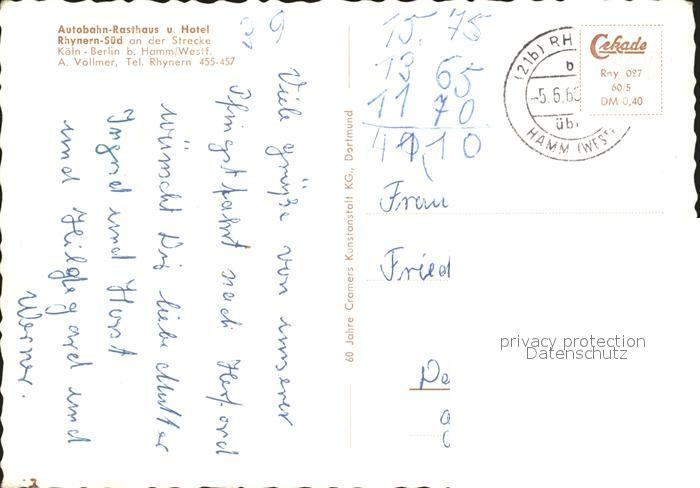 Autobahn-Rasthaus u. Hotel
Rhynern-Süd an der Strecke
Köln - Berlin b. Hamm/Westf.
A. Vollmer, Tel. Rhynern 455-457
Viele Grüße von unserer
Pfingstfahrt nach Herford
wünscht Dir liebe Mutter
Ingrid und Horst
und Hildegard und
Werner.
60 Jahre Cramers Kunstanstalt KG., Dortmund
15.75
13 65
11 70
41,10
(21b) RH
b
-5.6.60
üb.
HAMM (WESTF
Cekade
Rny 027
60/5
DM 0,40
Frau
Fried
De
privacy protection
Datenschutz